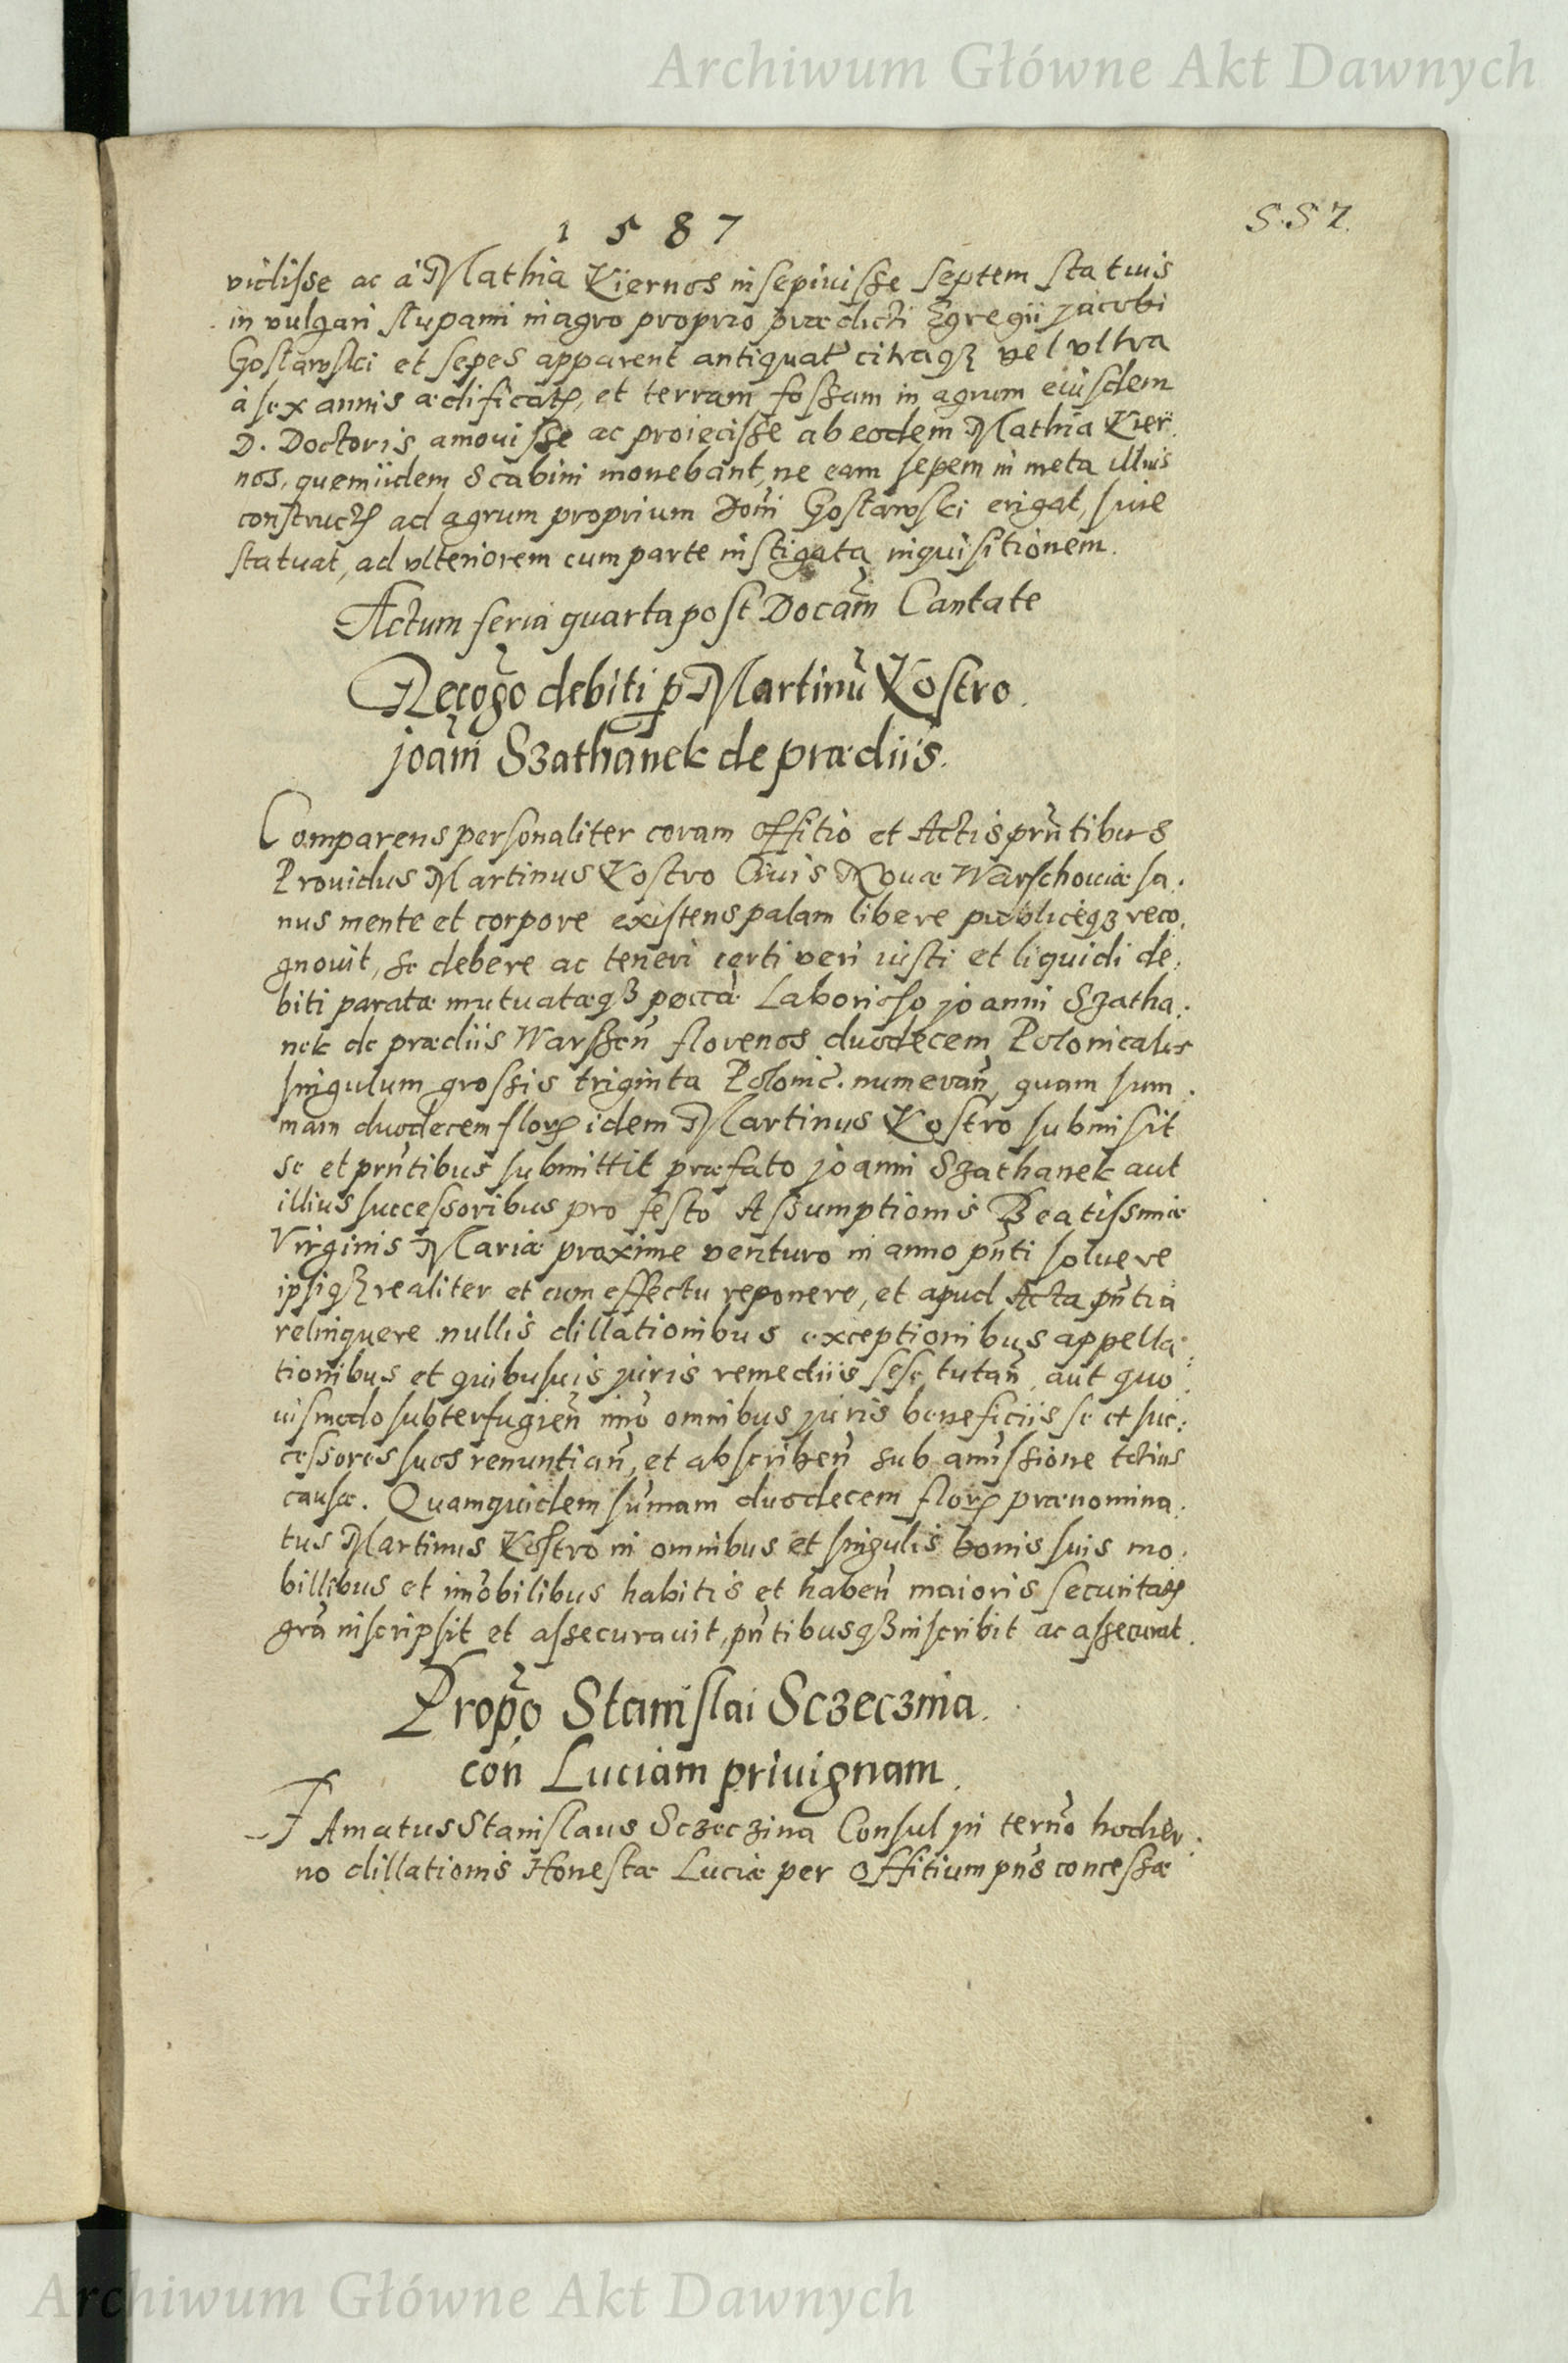 Archiwum Główne Akt Dawnych
1587
557.
vidisse ac à Mathia Kiernos insepiuisse septem statuis
in vulgari slupami in agro proprio prædicti Egregii Jacobi
Gostawski et sepes apparent antiquat citraqꝫ vel vltra
à sex annis ædificatꝝ, et terram fossam in agrum eiusdem
D. Doctoris amouisse ac proiecisse ab eodem Mathia Kier
nos, quem iidem Scabini monebant, ne eam sepem in meta illius
constructꝝ ad agrum proprium Domi Gostawski erigat, siue
statuat, ad vlteriorem cum parte instigata inquisitionem.
Actum feria quarta post Docam̃ Cantate
Recogo debiti p Martinũ Kostro.
joañi Szathanek de prædiis.
Comparens personaliter coram offitio et Actis prñtibus
Prouidus Martinus Kostro Ciuis Nouæ Warschouiæ sa.
nus mente et corpore existens palam libere publiceqꝫ reco.
gnouit, se debere ac teneri certi veri iusti et liquidi de.
biti paratæ mutuatæqꝫ pecciæ Laborioso joanni Szatha.
nek de prædiis Warsseñ florenos duodecem Polonicales
singulum grossis triginta Polonic. numerañ, quam sum.
mam duodecem florꝝ idem Martinus Kostro submisit
se et prñtibus submittit præfato joanni Szathanek aut
illius successoribus pro festo Assumptionis Beatissimæ
Virginis Mariæ proxime venturo in anno pñti soluere
ipsiqꝫ realiter et cum effectu reponere, et apud Acta pñtia
relinquere nullis dillationibus exceptionibus appella.
tionibus et quibusuis juris remediis sese tutañ, aut quo.
uismodo subterfugieñ imo omnibus juris beneficiis se et suc.
cessores suos renuntiañ, et abscribeñ sub amissione totius
causæ. Quamquidem sum̃am duodecem florꝝ prænomina.
tus Martinus Kostro in omnibus et singulis bonis suis mo.
billibus et im̃obilibus habitis et habeñ maioris securitatꝝ
grã inscripsit et assecurauit, pñtibusqꝫ inscribit ac assecurat.
Propõ Stanislai Sczeczina.
coñ Luciam priuignam.
FAmatus Stanislaus Sczeczina Consul in terño hodier.
no dillationis Honestæ Luciæ per offitium pñs concessæ
Archiwum Główne Akt Dawnych